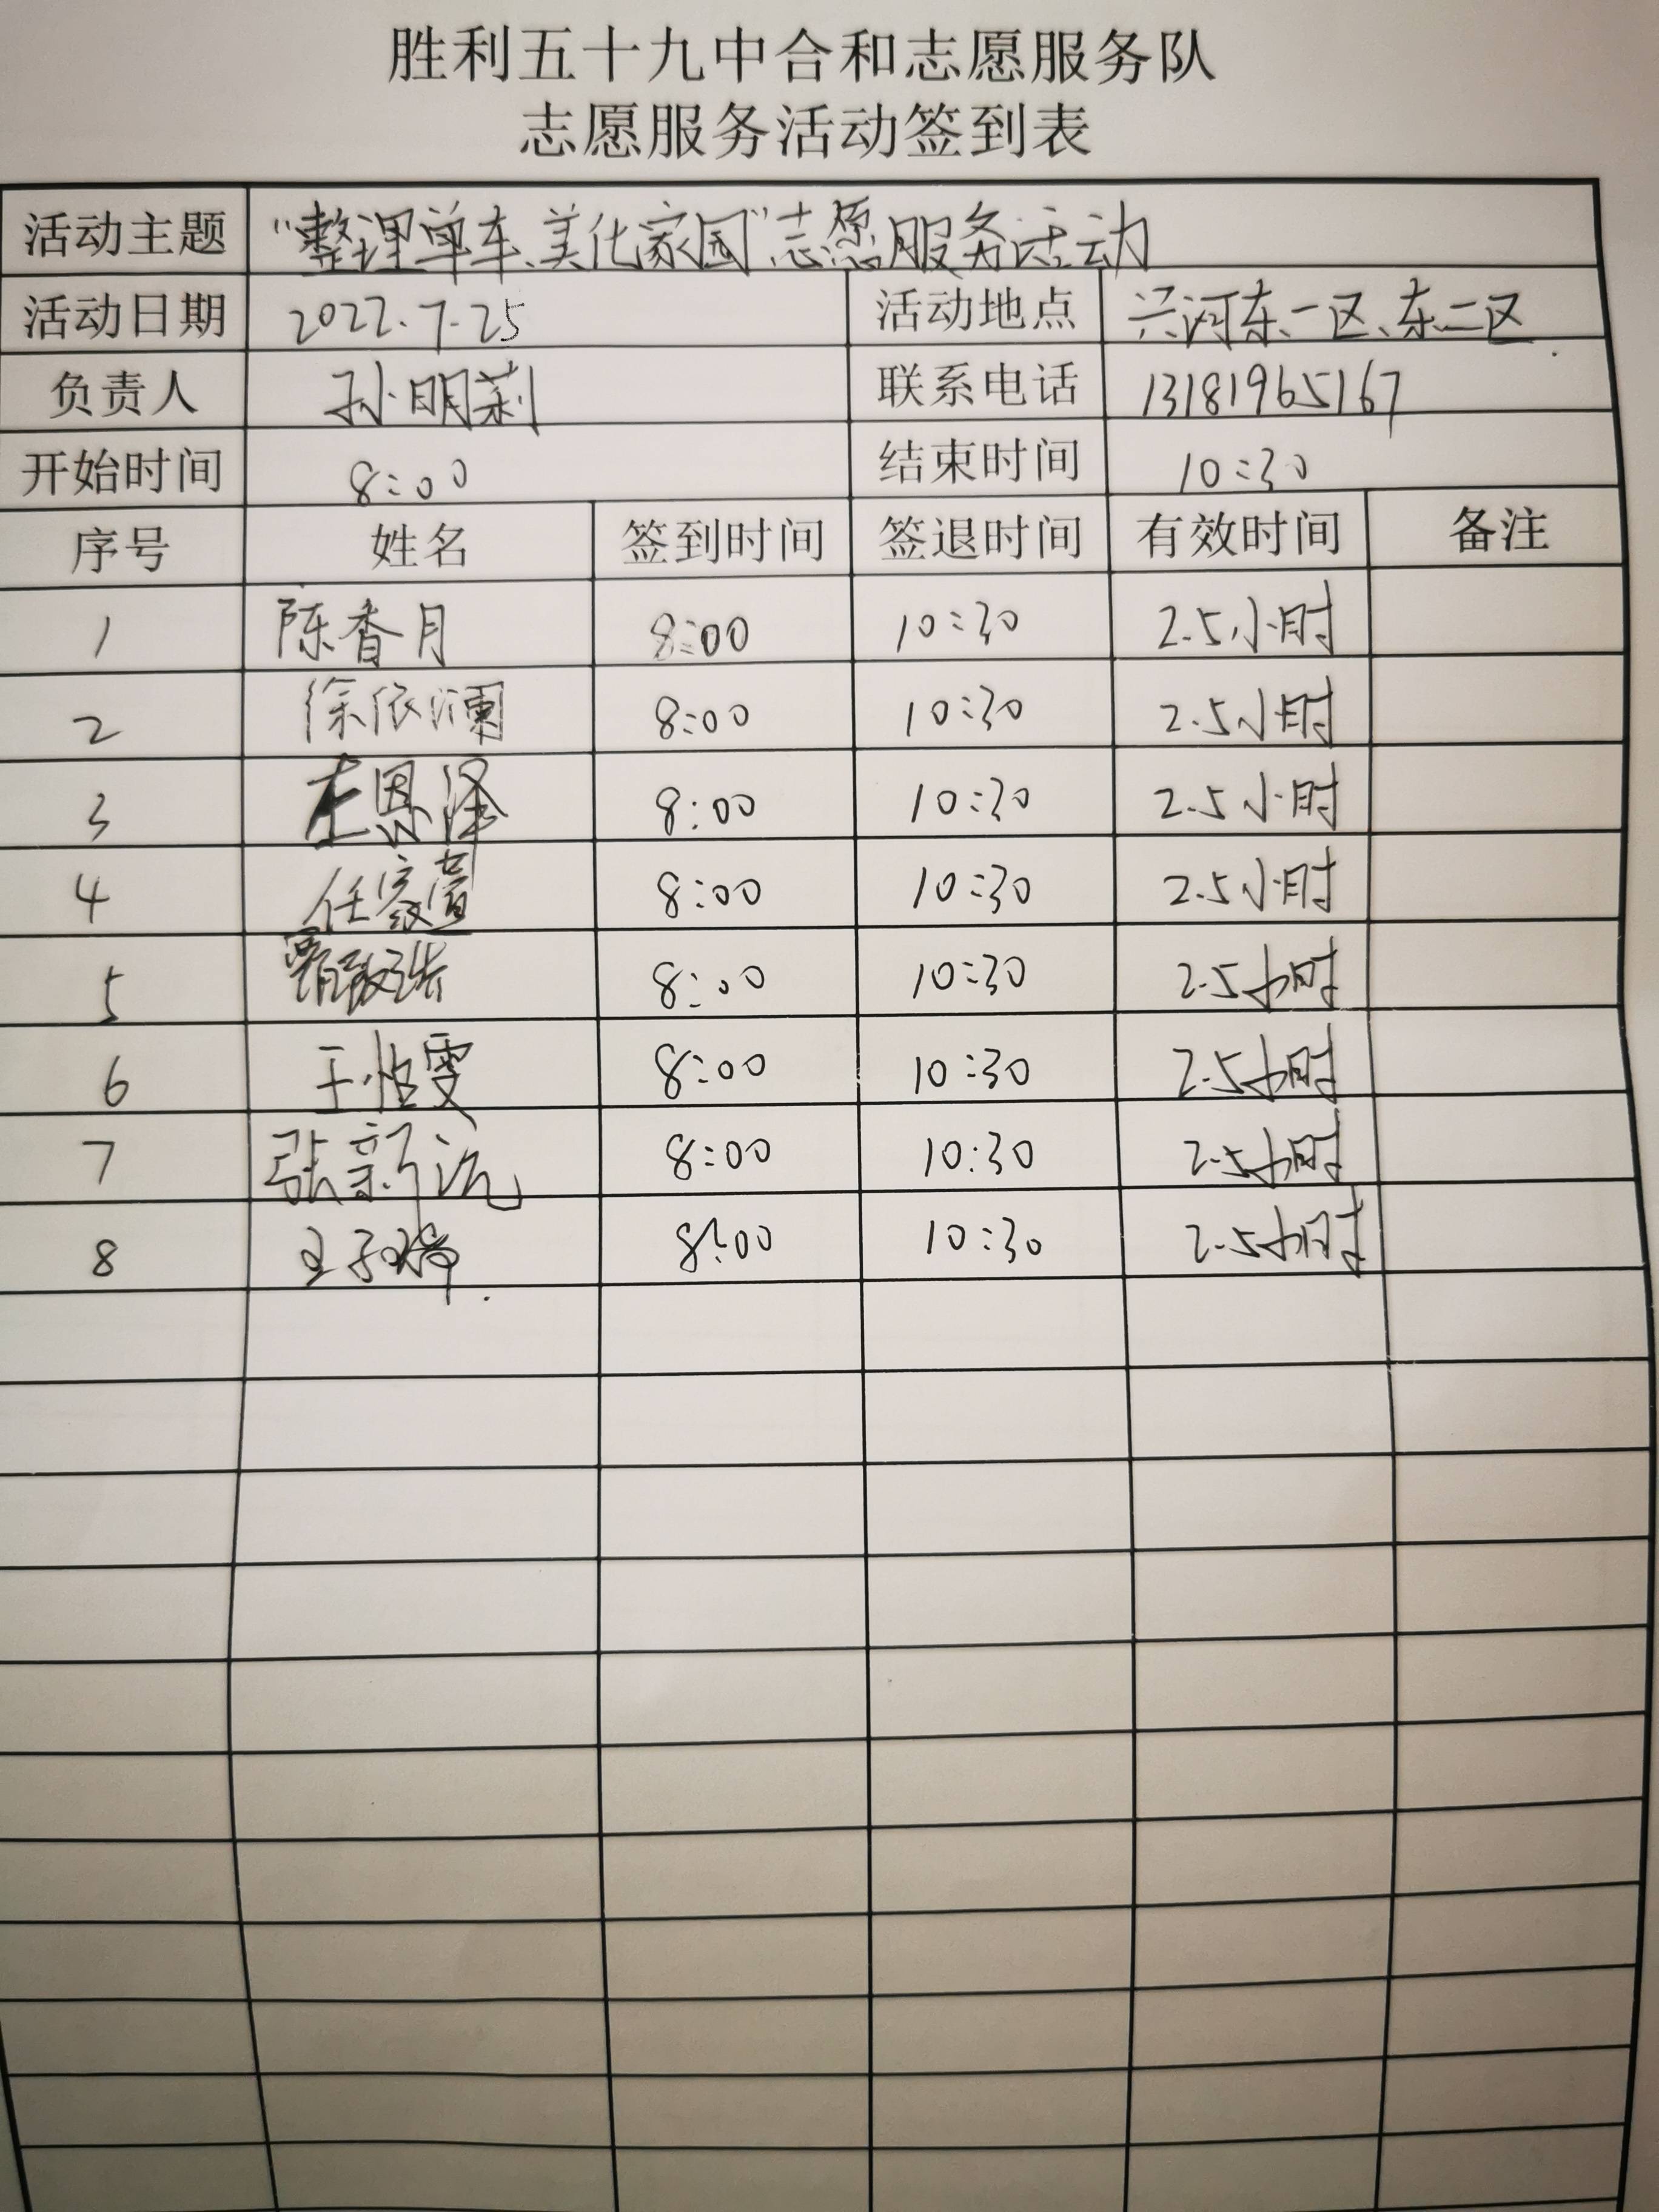 胜利五十九中合和志愿服务队
志愿服务活动签到表
活动主题 “整理单车、美化家园”志愿服务活动
活动日期 2022.7.25 活动地点 兴河东一区、东二区
负责人 孙明莉 联系电话 13181965167
开始时间 8:00 结束时间 10:30
序号 姓名 签到时间 签退时间 有效时间 备注
1 陈香月 8:00 10:30 2.5小时
2 徐依澜 8:00 10:30 2.5小时
3 左恩泽 8:00 10:30 2.5小时
4 任家萱 8:00 10:30 2.5小时
5 8:00 10:30 2.5小时
6 王怡雯 8:00 10:30 2.5小时
7 张新沅 8:00 10:30 2.5小时
8 王子 8:00 10:30 2.5小时